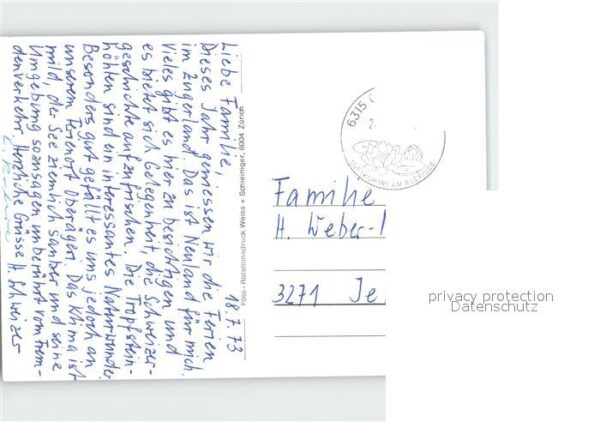 18.7.73
Liebe Familie,
Dieses Jahr geniessen wir die Ferien
im Zugerland. Das ist Neuland für mich.
Vieles gibt es hier zu besichtigen und
es bietet sich Gelegenheit, die Schweizer-
geschichte aufzufrischen. Die Tropfstein-
höhlen sind ein interessantes Naturwunder.
Besonders gut gefällt es uns jedoch an
unserem Ferienort Oberägeri. Das Klima ist
mild, der See ziemlich sauber und seine
Umgebung sozusagen unberührt vom Frem-
denverkehr. Herzliche Grüsse H. Schweizer
Foto- Rotationsdruck Weiss + Schleiniger, 8004 Zürich
6315
Familie
H. Weber-
3271 Je
privacy protection
Datenschutz